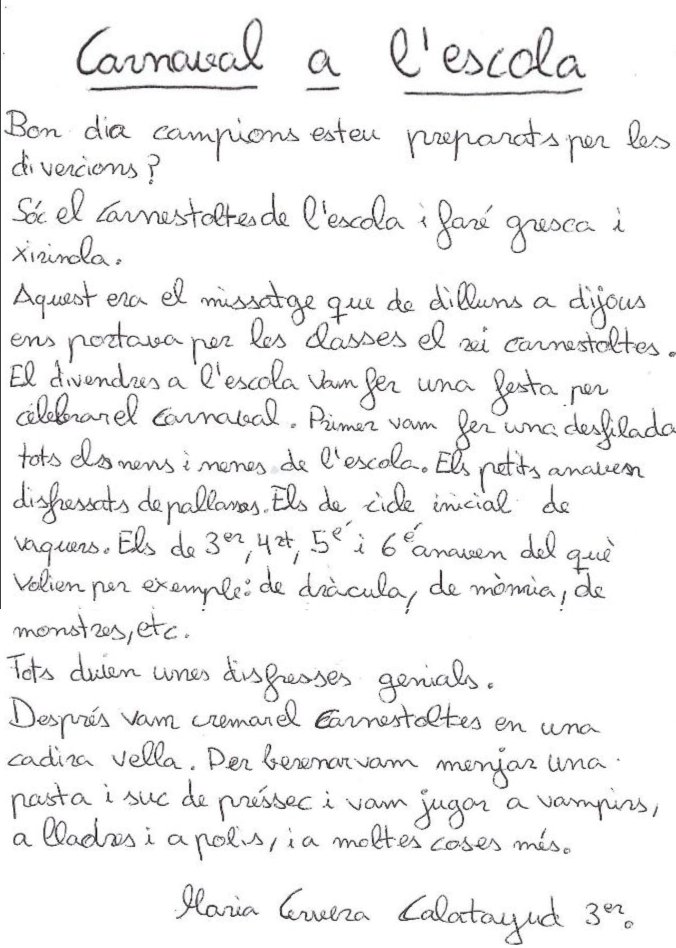 Carnaval a l'escola
Bon dia campions esteu preparats per les
divercions?
Sóc el Carnestoltes de l'escola i faré gresca i
xirinola.
Aquest era el missatge que de dilluns a dijous
ens portava per les classes el rei carnestoltes.
El divendres a l'escola vam fer una festa per
celebrar el carnaval. Primer vam fer una desfilada
tots els nens i nenes de l'escola. Els petits anaven
disfressats de pallassos. Els de cicle inicial de
vaquers. Els de 3er, 4rt, 5é i 6é anaven del què
volien per exemple: de dràcula, de mòmia, de
monstres, etc.
Tots duien unes disfresses genials.
Després vam cremar el Carnestoltes en una
cadira vella. Per berenar vam menjar una
pasta i suc de préssec i vam jugar a vampirs,
a lladres i a polis, i a moltes coses més.
Maria Cervera Calatayud 3er.